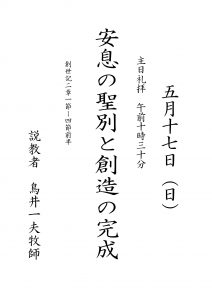 五月十七日（日）
主日礼拝　午前十時三十分
安息の聖別と創造の完成
創世記二章一節－四節前半
説教者　鳥井一夫牧師